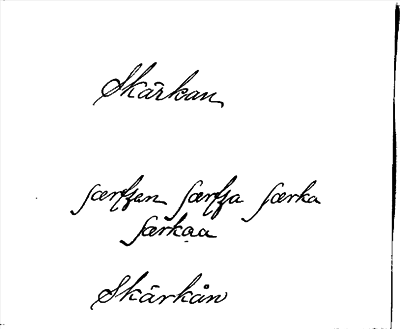 Skärkan
særfsen særfsa særka
særkaa
Skärkån